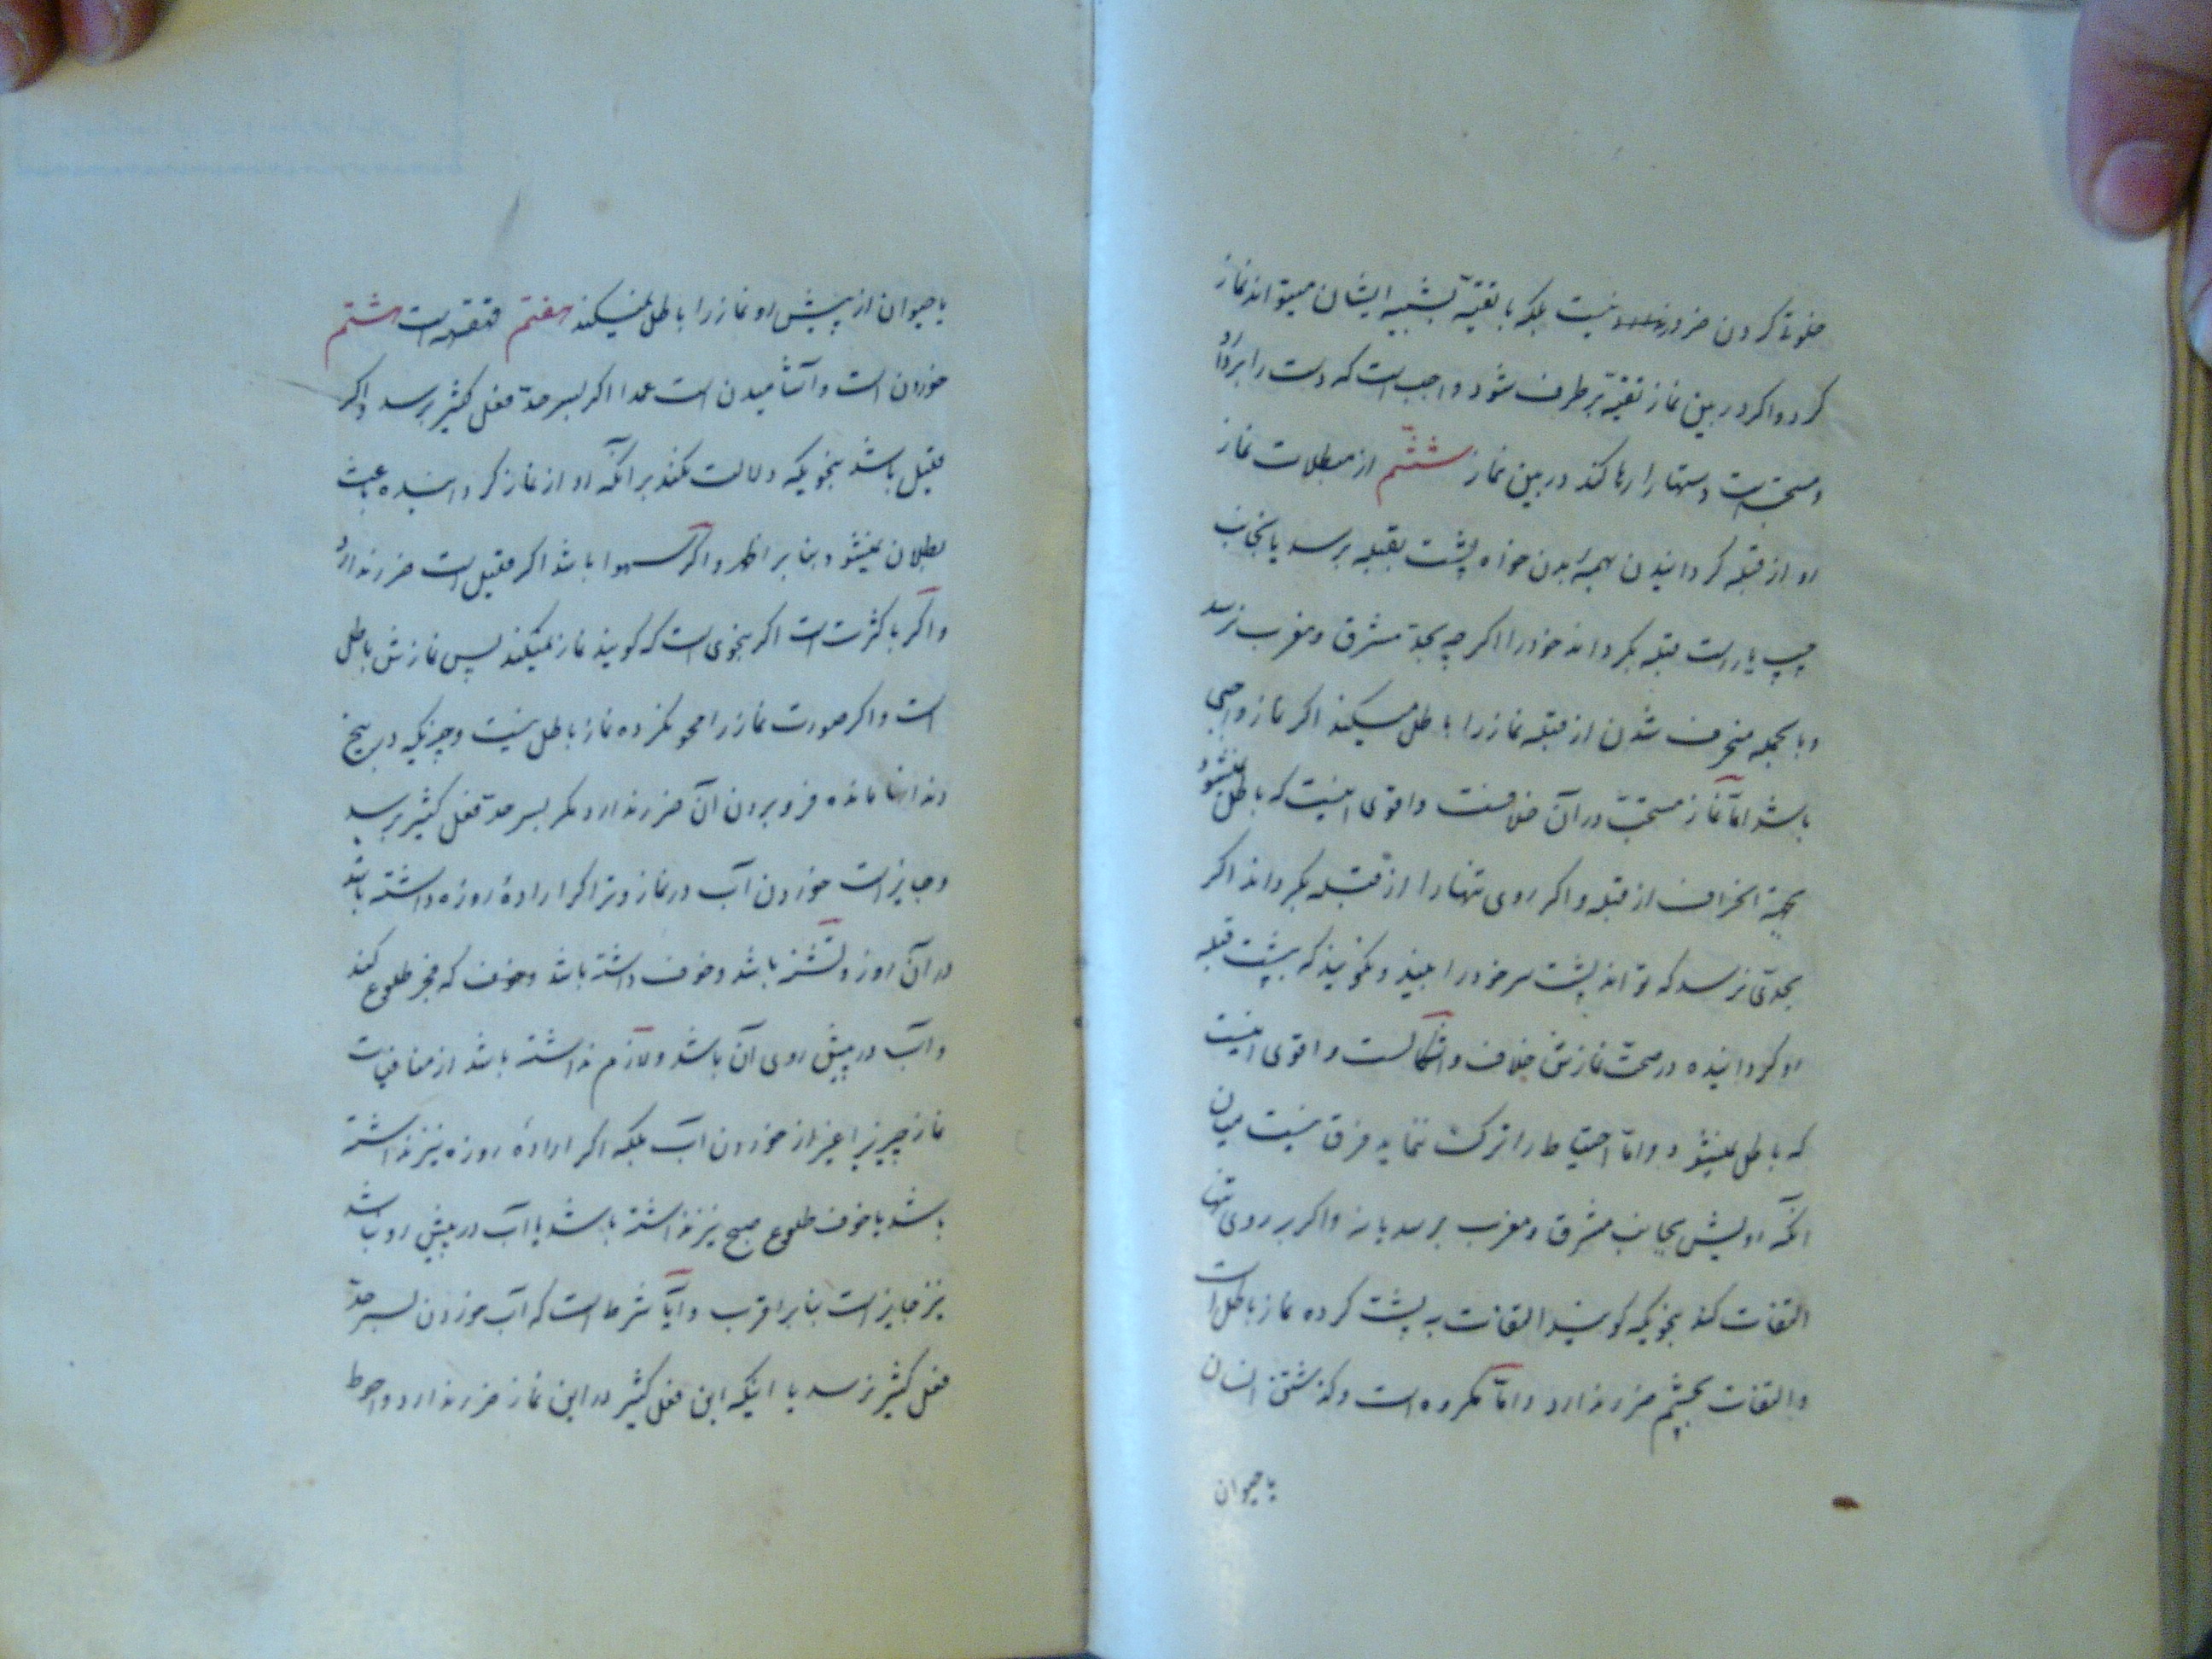 خلوت کردن ضرور نیست بلکه با تقیّه بشبیه ایشان میتواند نماز
کرد و اکر در بین نماز تقیّه برطرف شود واجب است که دست را بردارد
و مستحب است دستها را رها کند در بین نماز ششم از مبطلات نماز
رو از قبله کردانیدن بهمۀ بدن خواه پشت بقبله برسد یا بجانب
چپ یا راست قبله بکرداند خود را اکر چه بحدّ مشرق و مغرب نرسد
و بالجمله منحرف شدن از قبله نماز را باطل میکند اکر نماز واجبی
باشد امّا نماز مستحبّ در آن خلافست و اقوی اینست که باطل نمیشود
بجهة انحراف از قبله و اکر روی تنها را از قبله بکرداند اکر
بحدّی نرسد که تواند پشت سر خود را ببیند و نکویند که به پشت قبله
رو کردانیده در صحّت نمازش خلاف و اشکالست و اقوی اینست
که باطل نمیشود و امّا احتیاط را ترک ننماید فرق نیست میان
آنکه رویش بجانب مشرق و مغرب برسد یا نه و اکر بر روی تنها
التفات کند بنحویکه کویند التفات به پشت کرده نماز باطل است
و التفات بچشم ضرر ندارد و امّا مکروه است و کذشتن انسان
یا حیوان
یا حیوان از پیش رو نماز را باطل نمیکند هفتم قهقهه است هشتم
خوردن است و آشامیدن است عمدا اکر بسر حدّ فعل کثیر برسد و اکر
قلیل باشد بنحویکه دلالت نکند بر آنکه او از نماز کردانیده باعث
بطلان نمیشود بنا بر اظهر و اکر سهوا باشد اکر قلیل است ضرر ندارد
و اکر با کثرت است اکر بنحوی است که کویند نماز نمیکند پس نمازش باطل
است و اکر صورت نماز را محو نکرده نماز باطل نیست و چیزیکه در بیخ
دندانها مانده فرو بردن آن ضرر ندارد مکر بسر حدّ فعل کثیر برسد
و جایز است خوردن آب در نماز وتر اکر ارادۀ روزه داشته باشد
در آن روز و تشنه باشد و خوف داشته باشد و خوف که فجر طلوع کند
و آب در پیش روی آن باشد و لازم نداشته باشد از منافیات
نماز چیزیرا غیر از خوردن آب بلکه اکر ارادۀ روزه نیز نداشته
باشد یا خوف طلوع صبح نیز نداشته باشد یا آب در پیش رو باشد
نیز جایز است بنا بر اقرب و آیا شرط است که آب خوردن بسر حدّ
فعل کثیر نرسد یا اینکه این فعل کثیر در این نماز ضرر ندارد و احوط